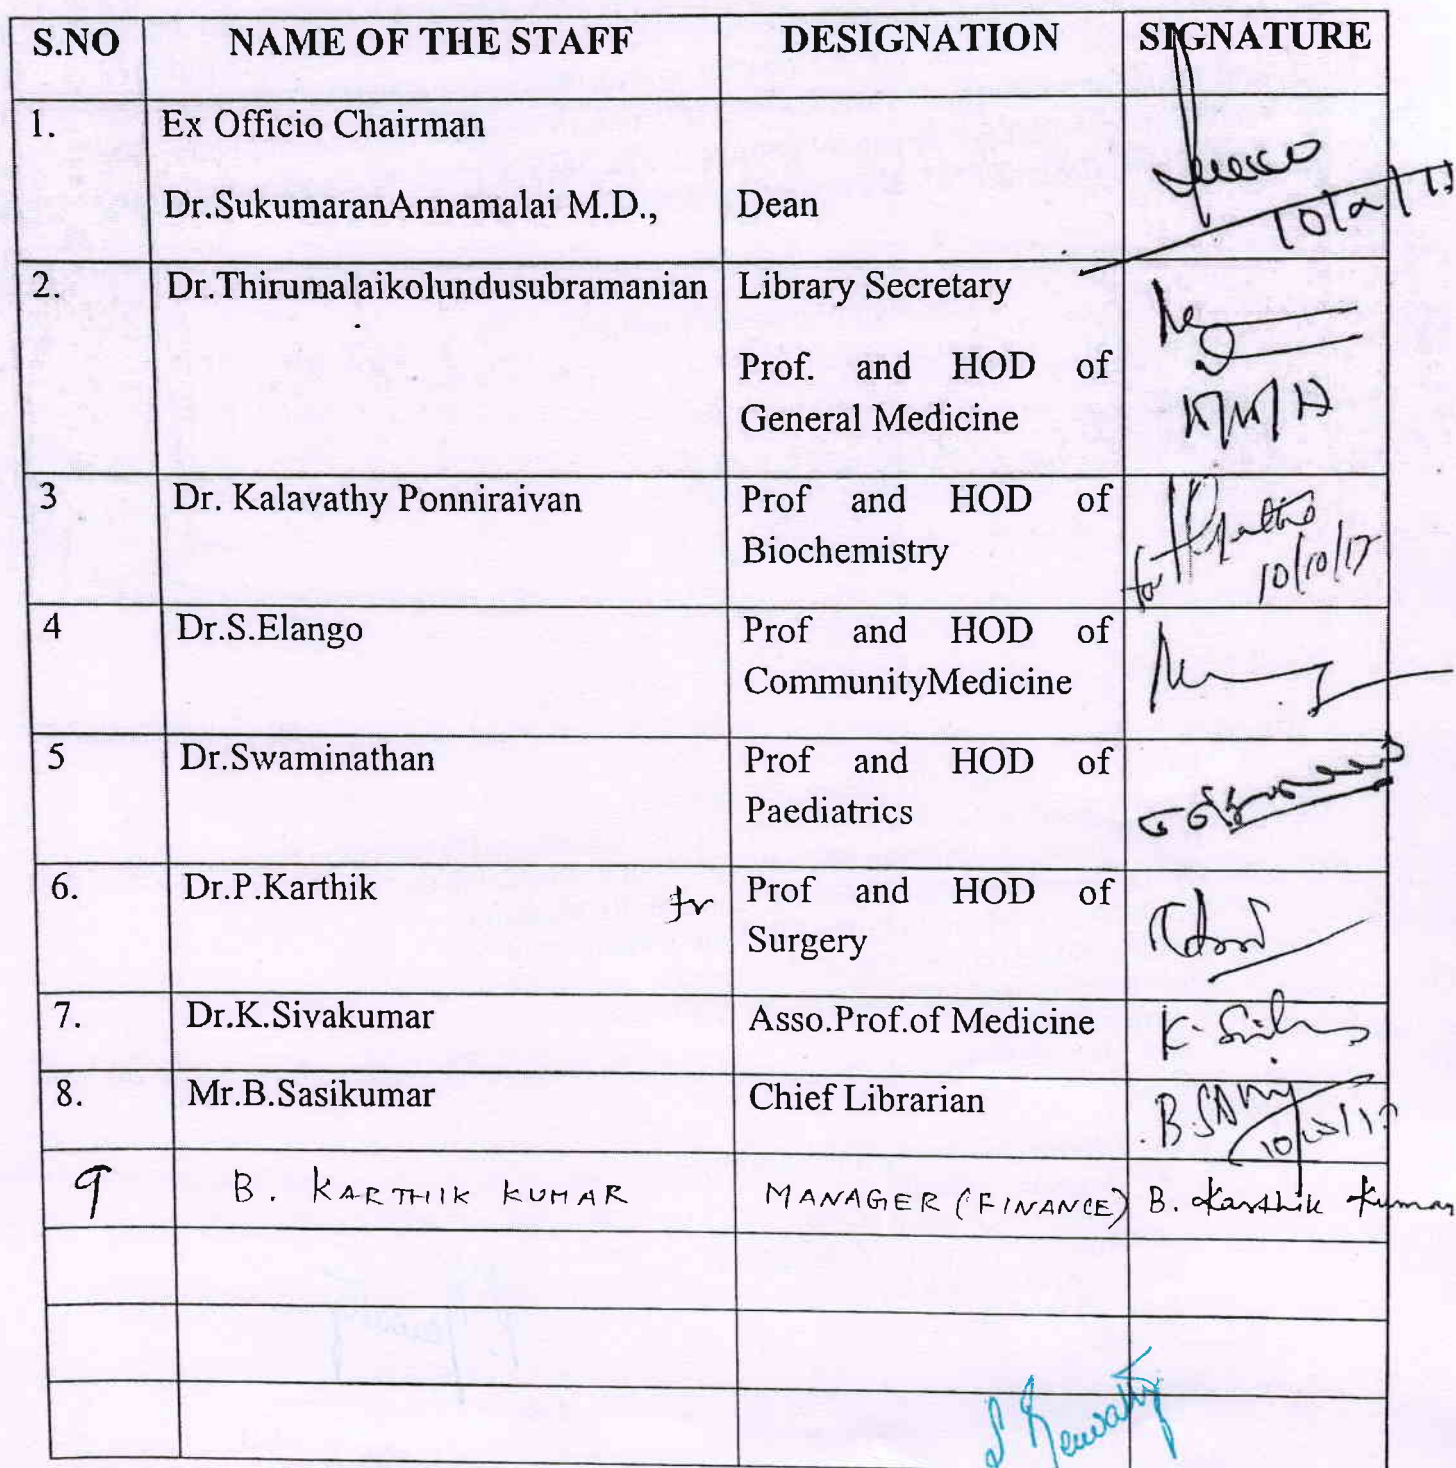 S.NO NAME OF THE STAFF DESIGNATION SIGNATURE
1. Ex Officio Chairman
Dr.SukumaranAnnamalai M.D., Dean
2. Dr.Thirumalaikolundusubramanian Library Secretary
Prof. and HOD of
General Medicine
3 Dr. Kalavathy Ponniraivan Prof and HOD of
Biochemistry for 10/10/17
4 Dr.S.Elango Prof and HOD of
CommunityMedicine
5 Dr.Swaminathan Prof and HOD of
Paediatrics
6. Dr.P.Karthik for Prof and HOD of
Surgery
7. Dr.K.Sivakumar Asso.Prof.of Medicine K.
8. Mr.B.Sasikumar Chief Librarian B.
9 B. KARTHIK KUMAR MANAGER (FINANCE) B. Karthik Kumar